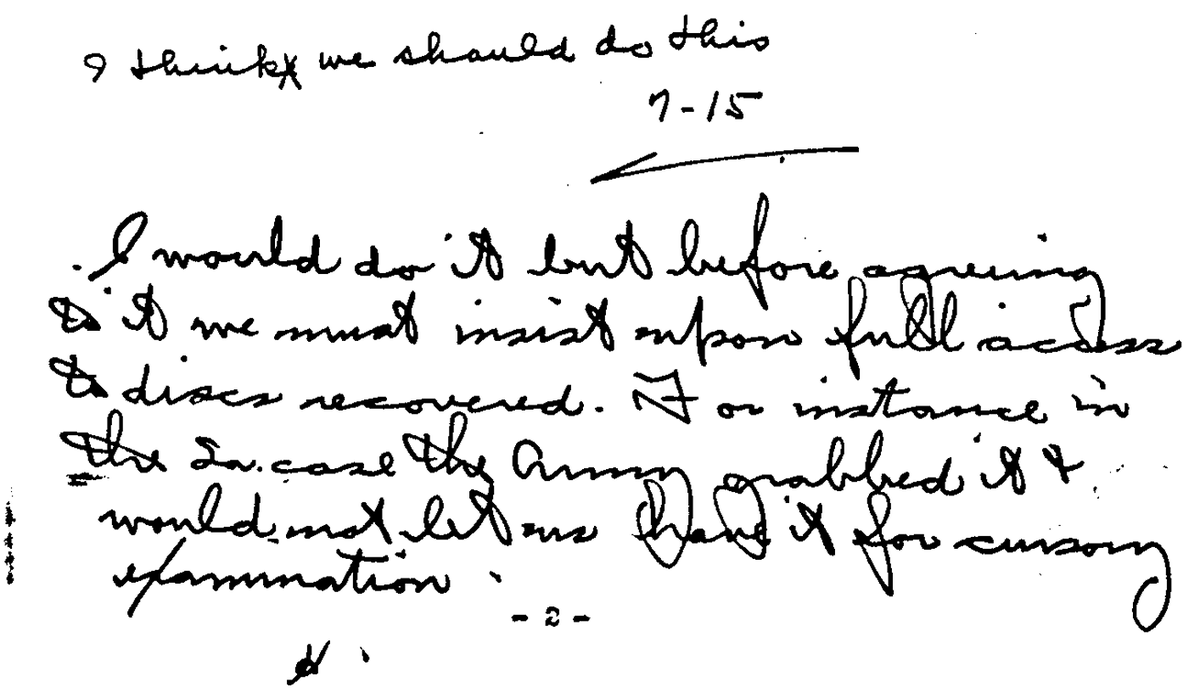 I think we should do this
7-15
I would do it but before agreeing
to it we must insist upon full access
to discs recovered. For instance in
the case the Army grabbed it &
would not let us have it for cursory
examination.
- 2 -